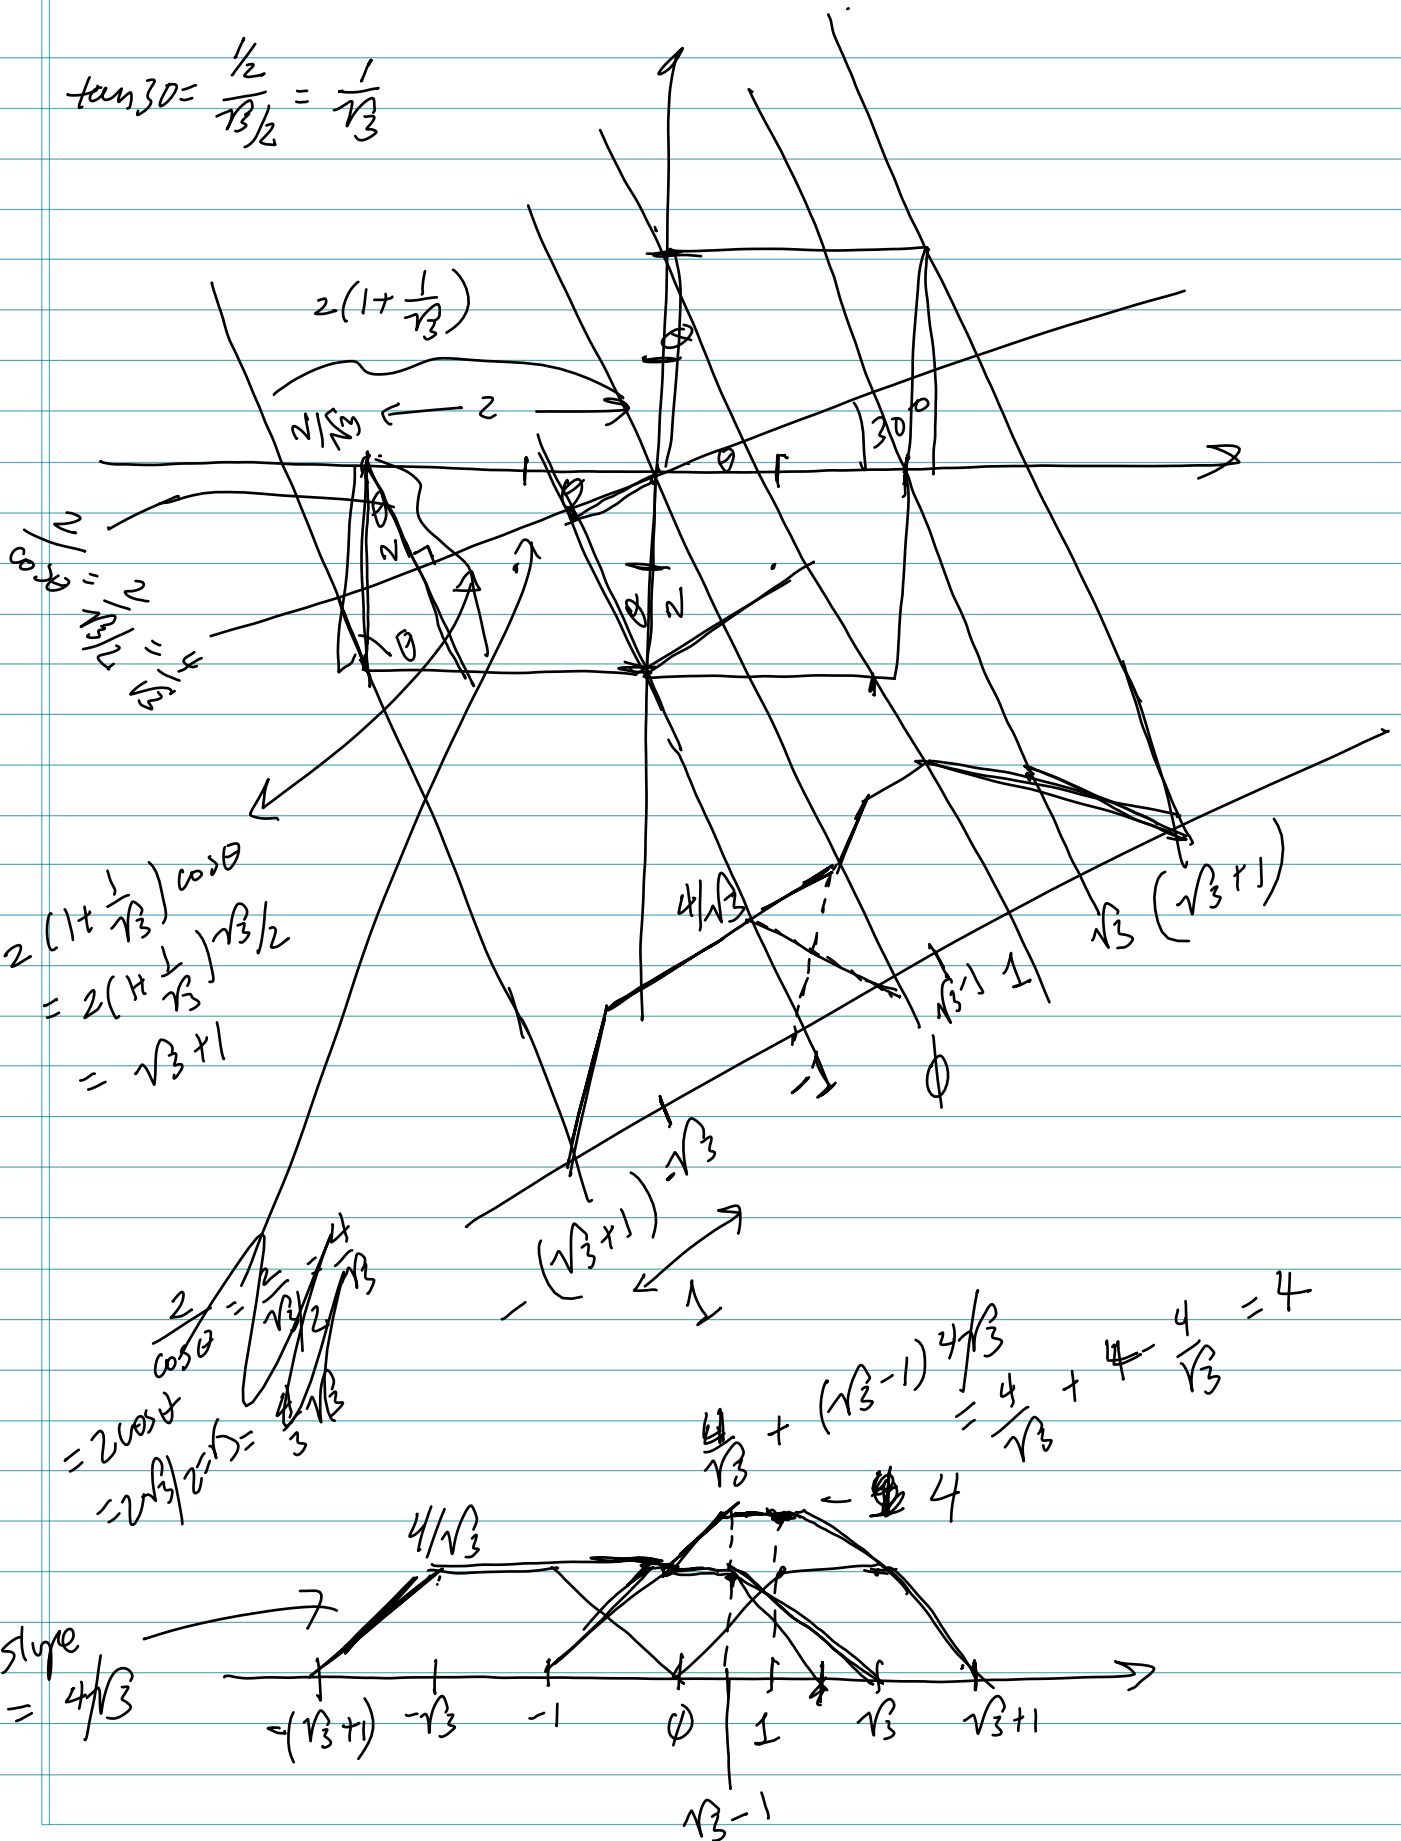 tan30 = 1/2 / √3/2 = 1/√3
2(1+1/√3)
2/√3 ← 2 →
θ
θ
30°
θ
2/cosθ = 2/√3/2 = 4/√3
θ
2
θ
2
θ
?
2(1+1/√3)cosθ
= 2(1+1/√3)√3/2
= √3+1
4/√3
√3
(√3+1)
√3-1
1
0
-1
-√3
-(√3+1)
1
2/cosθ = 2/√3/2 = 4/√3
= 2cosθ
= 2√3/2 = √3 =
4/√3 + (√3-1)4/√3
= 4/√3 + 4 - 4/√3 = 4
4/√3
- 4
slope
= 4/√3
-(√3+1) -√3 -1 0 1 √3 √3+1
√3-1